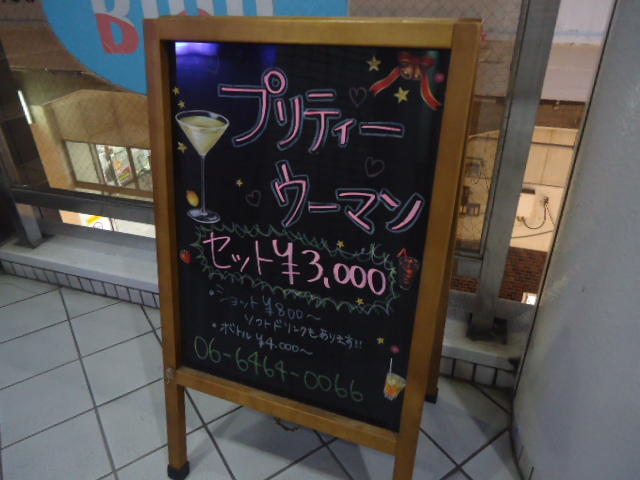 プリティー
ウーマン
セット¥3,000
・ショット¥800〜
ソフトドリンクもあります!!
・ボトル¥4.000〜
06-6464-0066